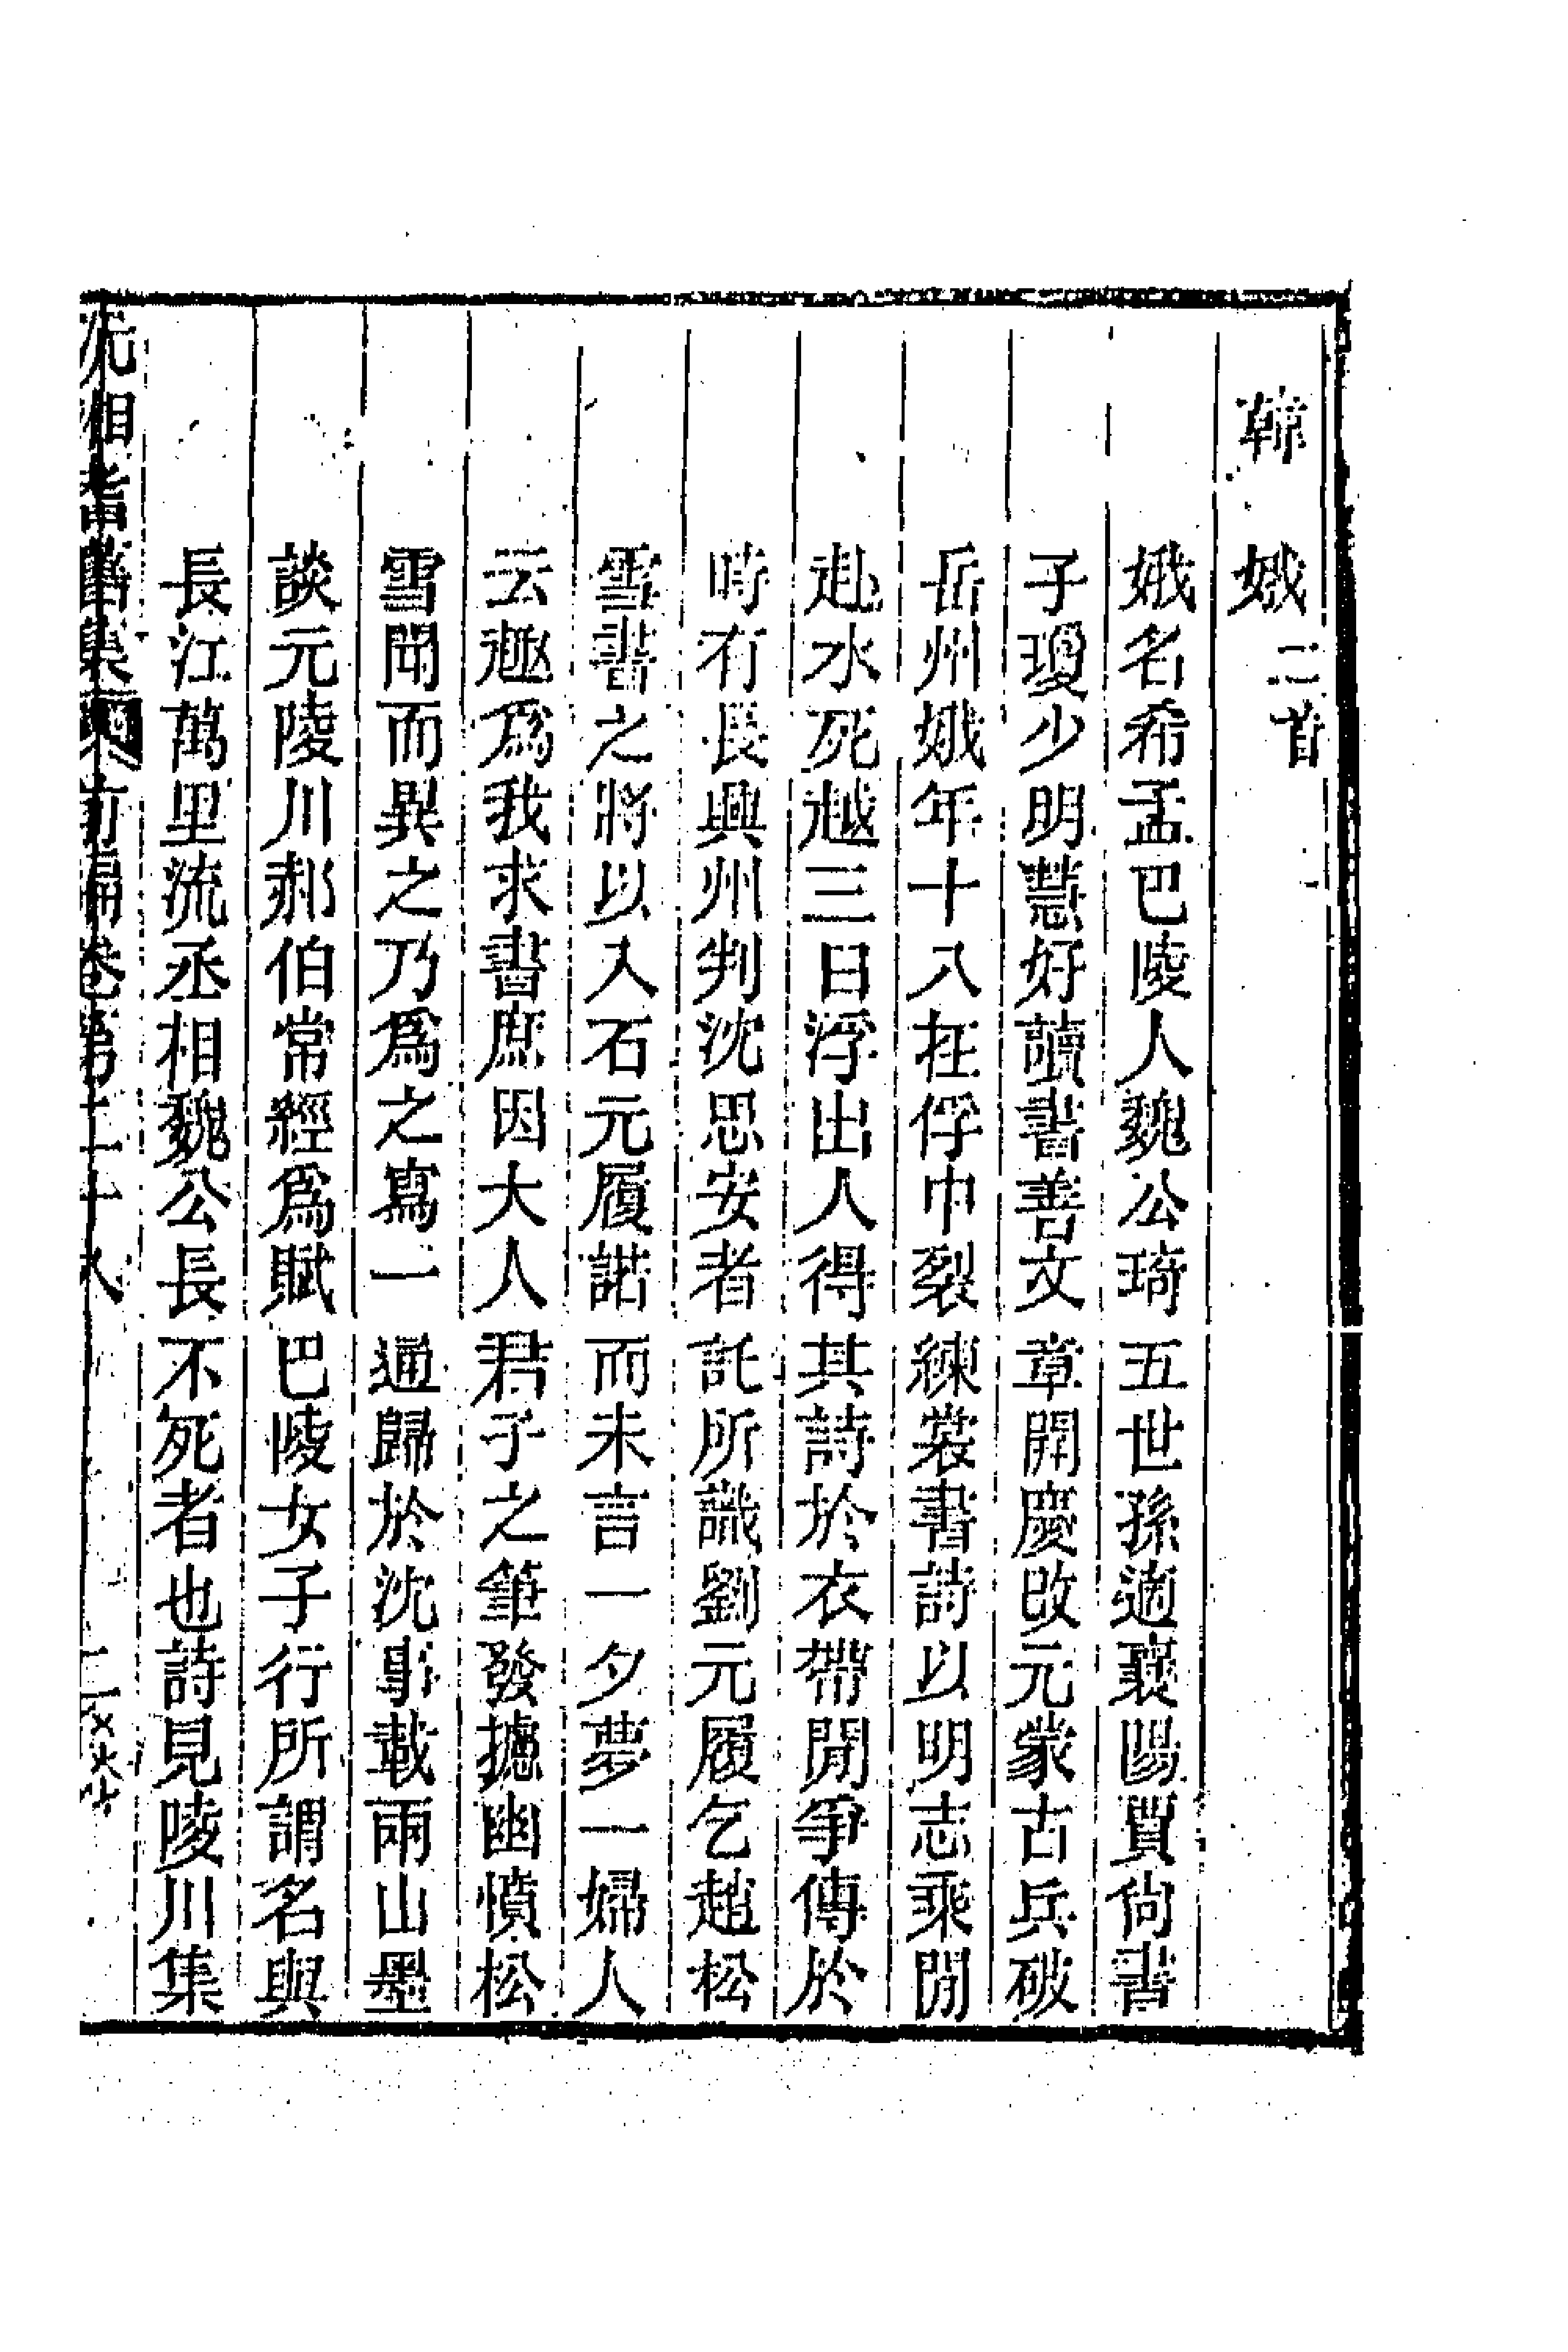 韓娥二首
娥名希孟巴陵人魏公琦五世孫適襄陽賈尙書
子瓊少明慧好讀書善文章開慶改元蒙古兵破
岳州娥年十八在俘中裂練裳書詩以明志乘閒
赴水死越三日浮出人得其詩於衣帶閒爭傳於
時有長興州判沈思安者託所識劉元履乞趙松
雪書之將以入石元履諾而未言一夕夢一婦人
云趣爲我求書庶因大人君子之筆發攄幽憤松
雪聞而異之乃爲之寫一通歸於沈事載雨山墨
談元陵川郝伯常經爲賦巴陵女子行所謂名與
長江萬里流丞相魏公長不死者也詩見陵川集
沅湘耆舊集前編卷第二十八